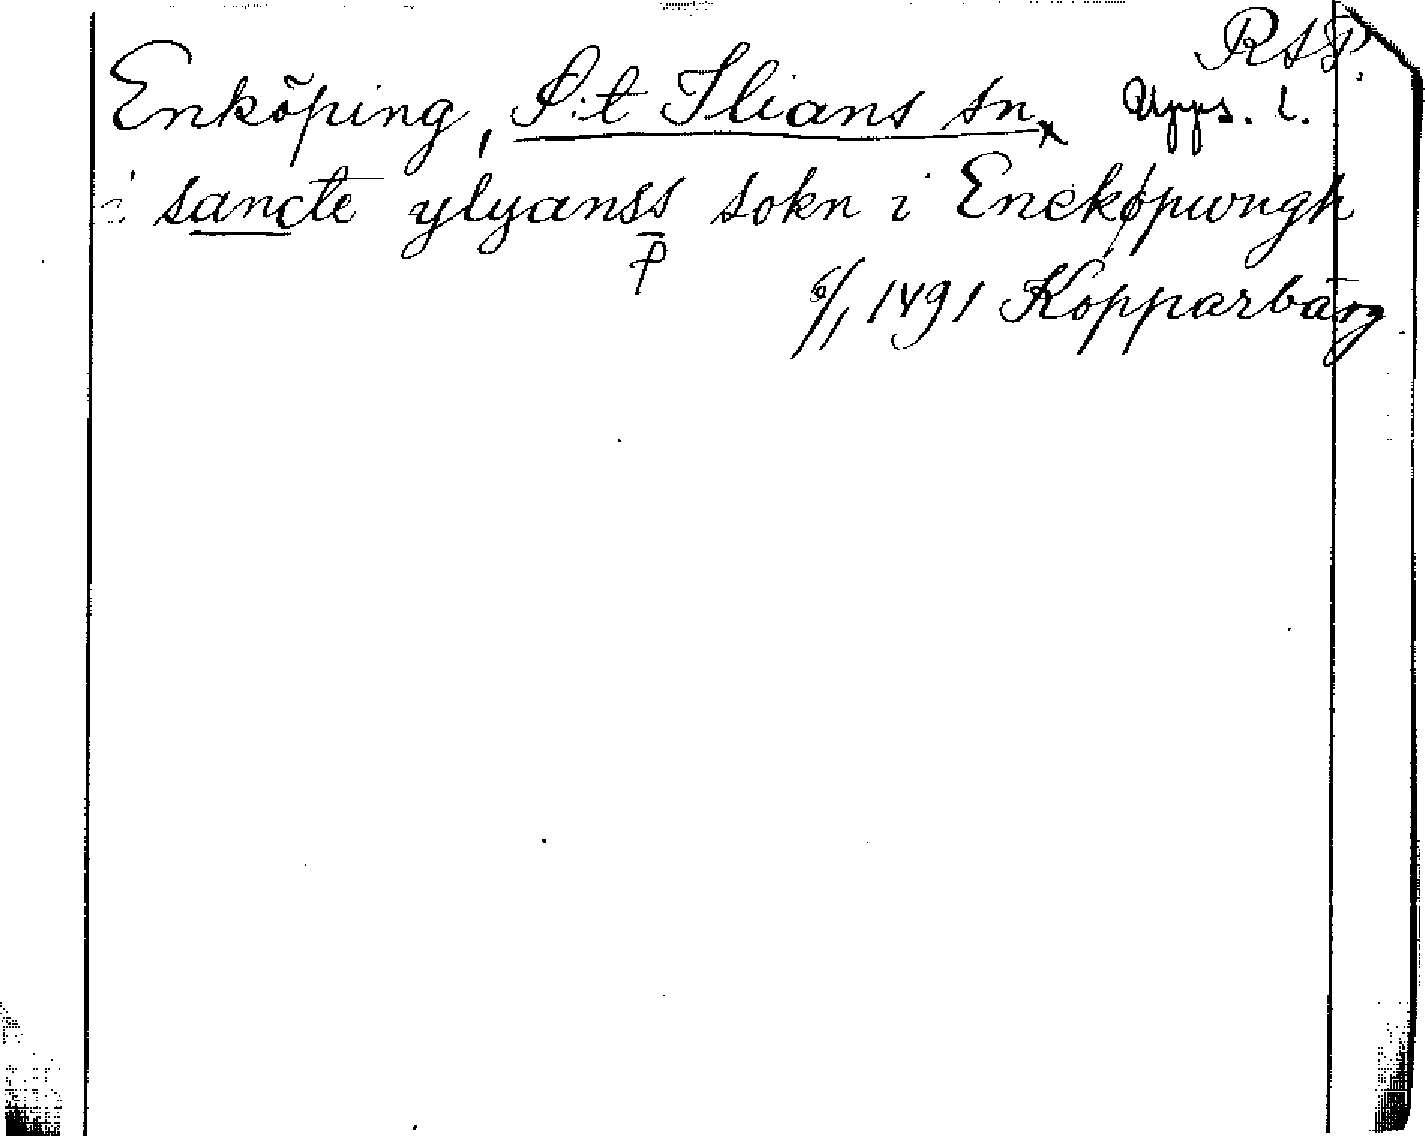 RAP.
Enköping, S:t Ilians sn x Upps. l.
i sancte ylyanss sokn i Enekøpwngh
P
6/1 1491 Kopparbärg